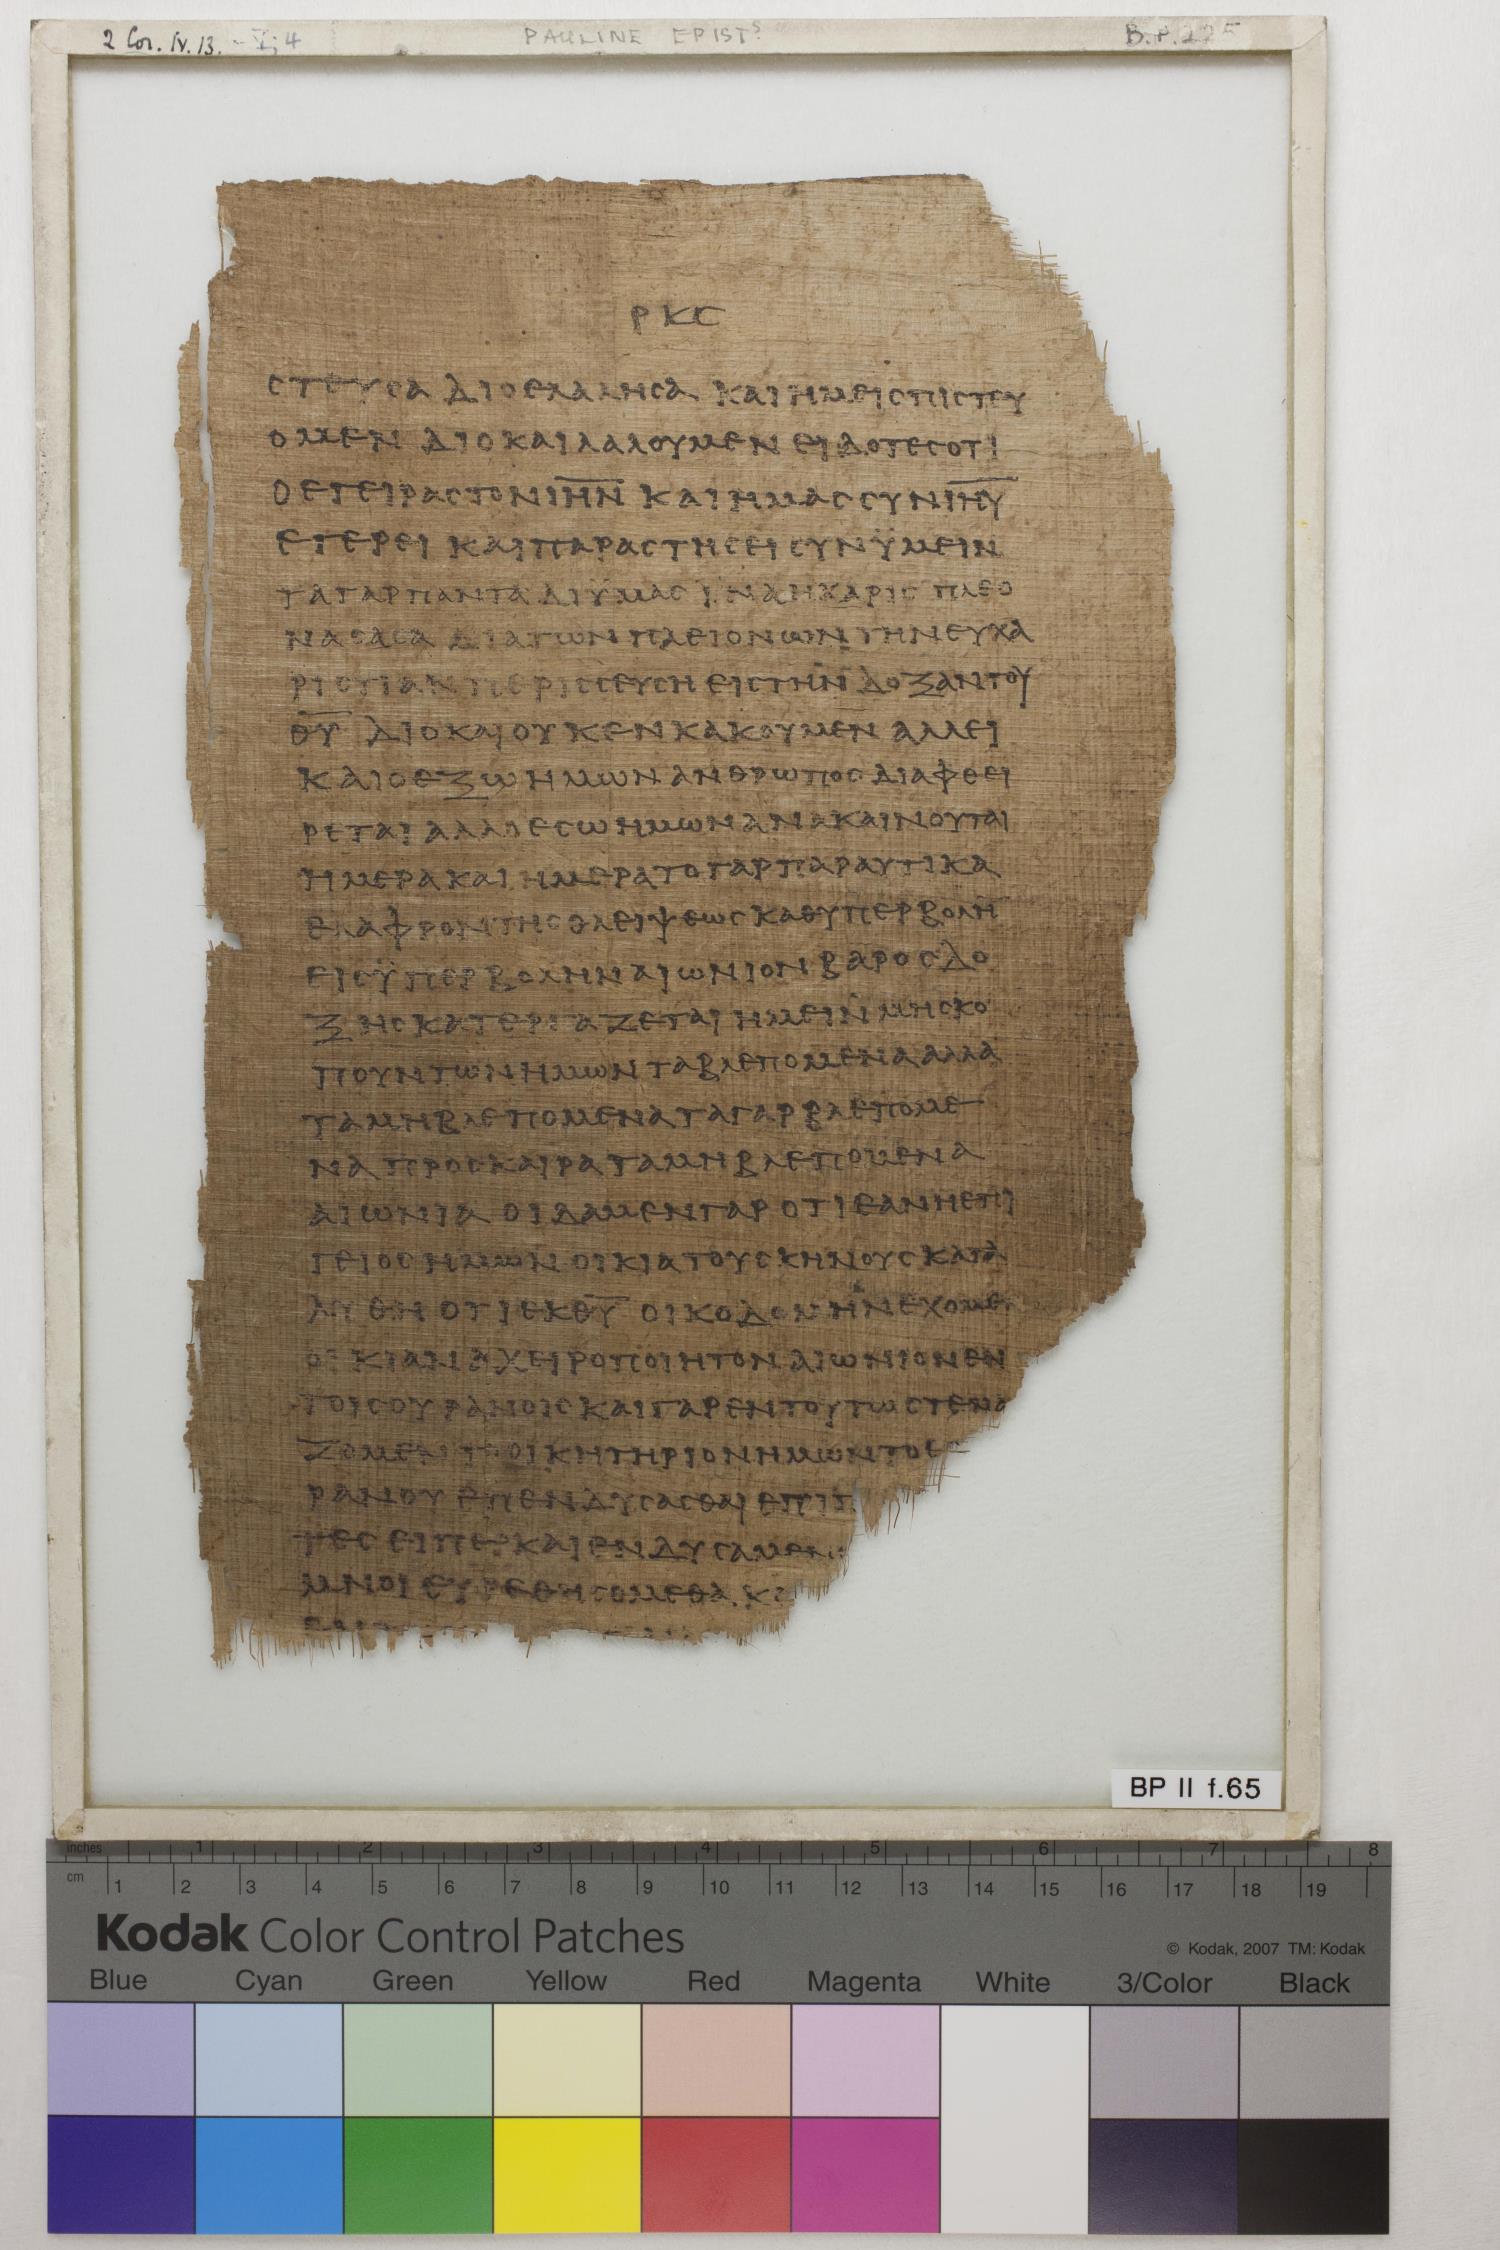 2 Cor. IV. 13. - V; 4 PAULINE EPISTS B.P. 225
ΡΚϹ
ϹΤΕΥϹΑ ΔΙΟΕΛΑΛΗϹΑ ΚΑΙΗΜΕΙϹΠΙϹΤΕΥ
ΟΜΕΝ ΔΙΟΚΑΙΛΑΛΟΥΜΕΝ ΕΙΔΟΤΕϹΟΤΙ
ΟΕΓΕΙΡΑϹΤΟΝΙ̅Η̅Ν̅ ΚΑΙΗΜΑϹϹΥΝΙ̅Η̅Υ̅
ΕΓΕΡΕΙ ΚΑΙΠΑΡΑϹΤΗϹΕΙϹΥΝΫΜΕΙΝ
ΤΑΓΑΡΠΑΝΤΑΔΙΫΜΑϹ ΙΝΑΗΧΑΡΙϹ ΠΛΕΟ
ΝΑϹΑϹΑ ΔΙΑΤΩΝΠΛΕΙΟΝΩΝΤΗΝΕΥΧΑ
ΡΙϹΤΙΑΝΠΕΡΙϹϹΕΥϹΗΕΙϹΤΗΝΔΟΞΑΝΤΟΥ
Θ̅Υ̅ ΔΙΟΚΑΙΟΥΚΕΝΚΑΚΟΥΜΕΝ ΑΛΛΕΙ
ΚΑΙΟΕΞΩΗΜΩΝΑΝΘΡΩΠΟϹΔΙΑΦΘΕΙ
ΡΕΤΑΙΑΛΛΟΕϹΩΗΜΩΝΑΝΑΚΑΙΝΟΥΤΑΙ
ΗΜΕΡΑΚΑΙΗΜΕΡΑΤΟΓΑΡΠΑΡΑΥΤΙΚΑ
ΕΛΑΦΡΟΝΤΗϹΘΛΕΙΨΕΩϹΚΑΘΥΠΕΡΒΟΛΗ
ΕΙϹΫΠΕΡΒΟΛΗΝΑΙΩΝΙΟΝΒΑΡΟϹΔΟ
ΞΗϹΚΑΤΕΡΓΑΖΕΤΑΙΗΜΕΙΝΜΗϹΚΟ
ΠΟΥΝΤΩΝΗΜΩΝΤΑΒΛΕΠΟΜΕΝΑΑΛΛΑ
ΤΑΜΗΒΛΕΠΟΜΕΝΑΤΑΓΑΡΒΛΕΠΟΜΕ
ΝΑΠΡΟϹΚΑΙΡΑΤΑΜΗΒΛΕΠΟΜΕΝΑ
ΑΙΩΝΙΑ ΟΙΔΑΜΕΝΓΑΡΟΤΙΕΑΝΗΕΠΙ
ΓΕΙΟϹΗΜΩΝΟΙΚΙΑΤΟΥϹΚΗΝΟΥϹΚΑΤΑ
ΛΥΘΗ ΟΤΙΕΚΘ̅Υ̅ ΟΙΚΟΔΟΜΗΝΕΧΟΜΕ
ΟΙΚΙΑΝΑΧΕΙΡΟΠΟΙΗΤΟΝΑΙΩΝΙΟΝΕΝ
ΤΟΙϹΟΥΡΑΝΟΙϹΚΑΙΓΑΡΕΝΤΟΥΤΩϹΤΕΝΑ
ΖΟΜΕΝΤΟΟΙΚΗΤΗΡΙΟΝΗΜΩΝΤΟΕΞ
ΡΑΝΟΥΕΠΕΝΔΥϹΑϹΘΑΙΕΠΙΠ
ΤΕϹΕΙΠΕΡΚΑΙΕΝΔΥϹΑΜΕΝΟ
ΜΝΟΙΕΥΡΕΘΗϹΟΜΕΘΑ ΚΑ
BP II f.65
inches 1 2 3 4 5 6 7 8
cm 1 2 3 4 5 6 7 8 9 10 11 12 13 14 15 16 17 18 19
Kodak Color Control Patches
© Kodak, 2007 TM: Kodak
Blue Cyan Green Yellow Red Magenta White 3/Color Black